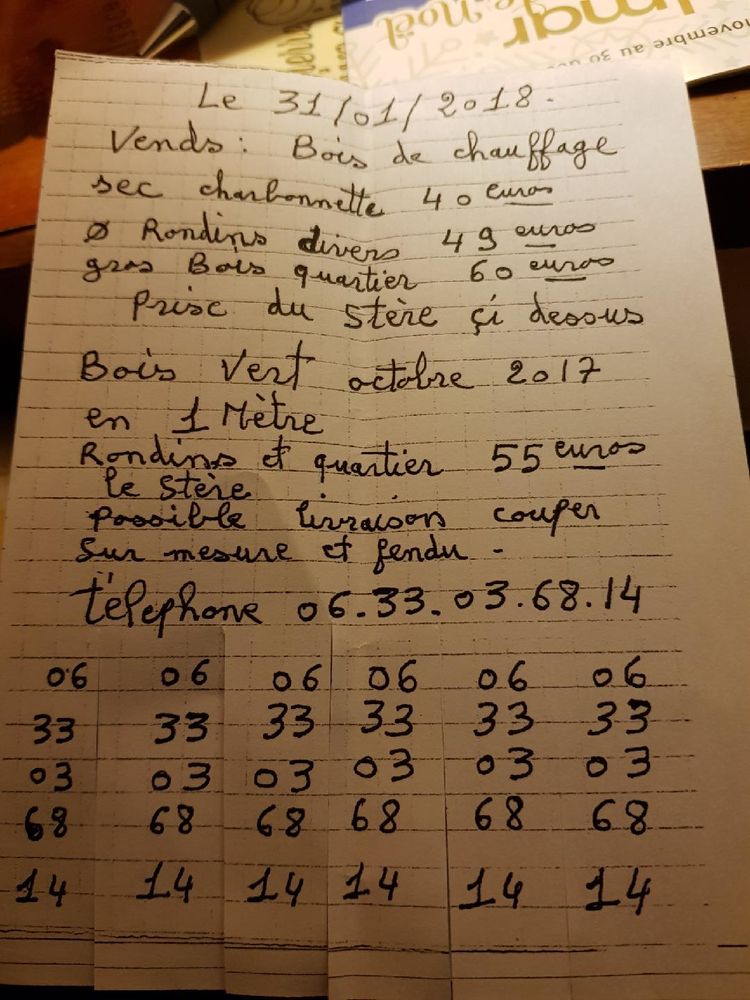 Le 31/01/2018.
Vends: Bois de chauffage
sec charbonnette 40 euros
Ø Rondins divers 49 euros
gros Bois quartier 60 euros
Prise du stère çi dessus
Bois Vert octobre 2017
en 1 Mètre
Rondins et quartier 55 euros
le stère
possible livraison couper
sur mesure et fendu -
téléphone 06.33.03.68.14
06 06 06 06 06 06
33 33 33 33 33 33
03 03 03 03 03 03
68 68 68 68 68 68
14 14 14 14 14 14
mar
Noël
ovembre au 30